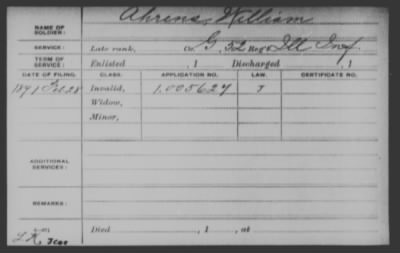 NAME OF SOLDIER: Ahrens, William
SERVICE: Late rank, Co. G, 32 Reg't Ill Inf.
TERM OF SERVICE: Enlisted , 1 Discharged , 1
DATE OF FILING. CLASS. APPLICATION NO. LAW. CERTIFICATE NO.
1891 Feb 28 Invalid, 1.005627
Widow,
Minor,
ADDITIONAL SERVICES:
REMARKS:
Died , 1 , at